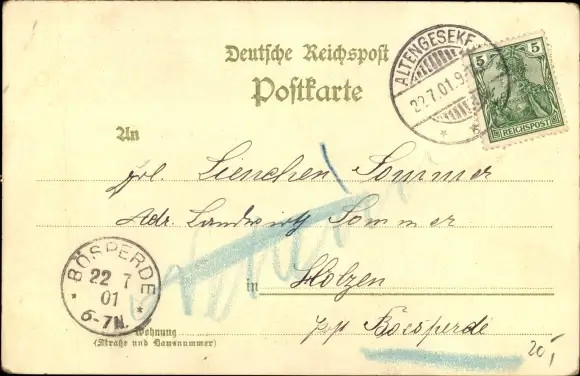 Deutsche Reichspost
Postkarte
ALTENGESEKE
22.7.01.9
5 5
REICHSPOST
An
Frl. Lienchen Sommer
Adr. Landwirth Sommer
in Holzen
p/r Boesperde
BÖSPERDE
22 7
01
6-7N.
Wohnung
(Straße und Hausnummer)
20,-